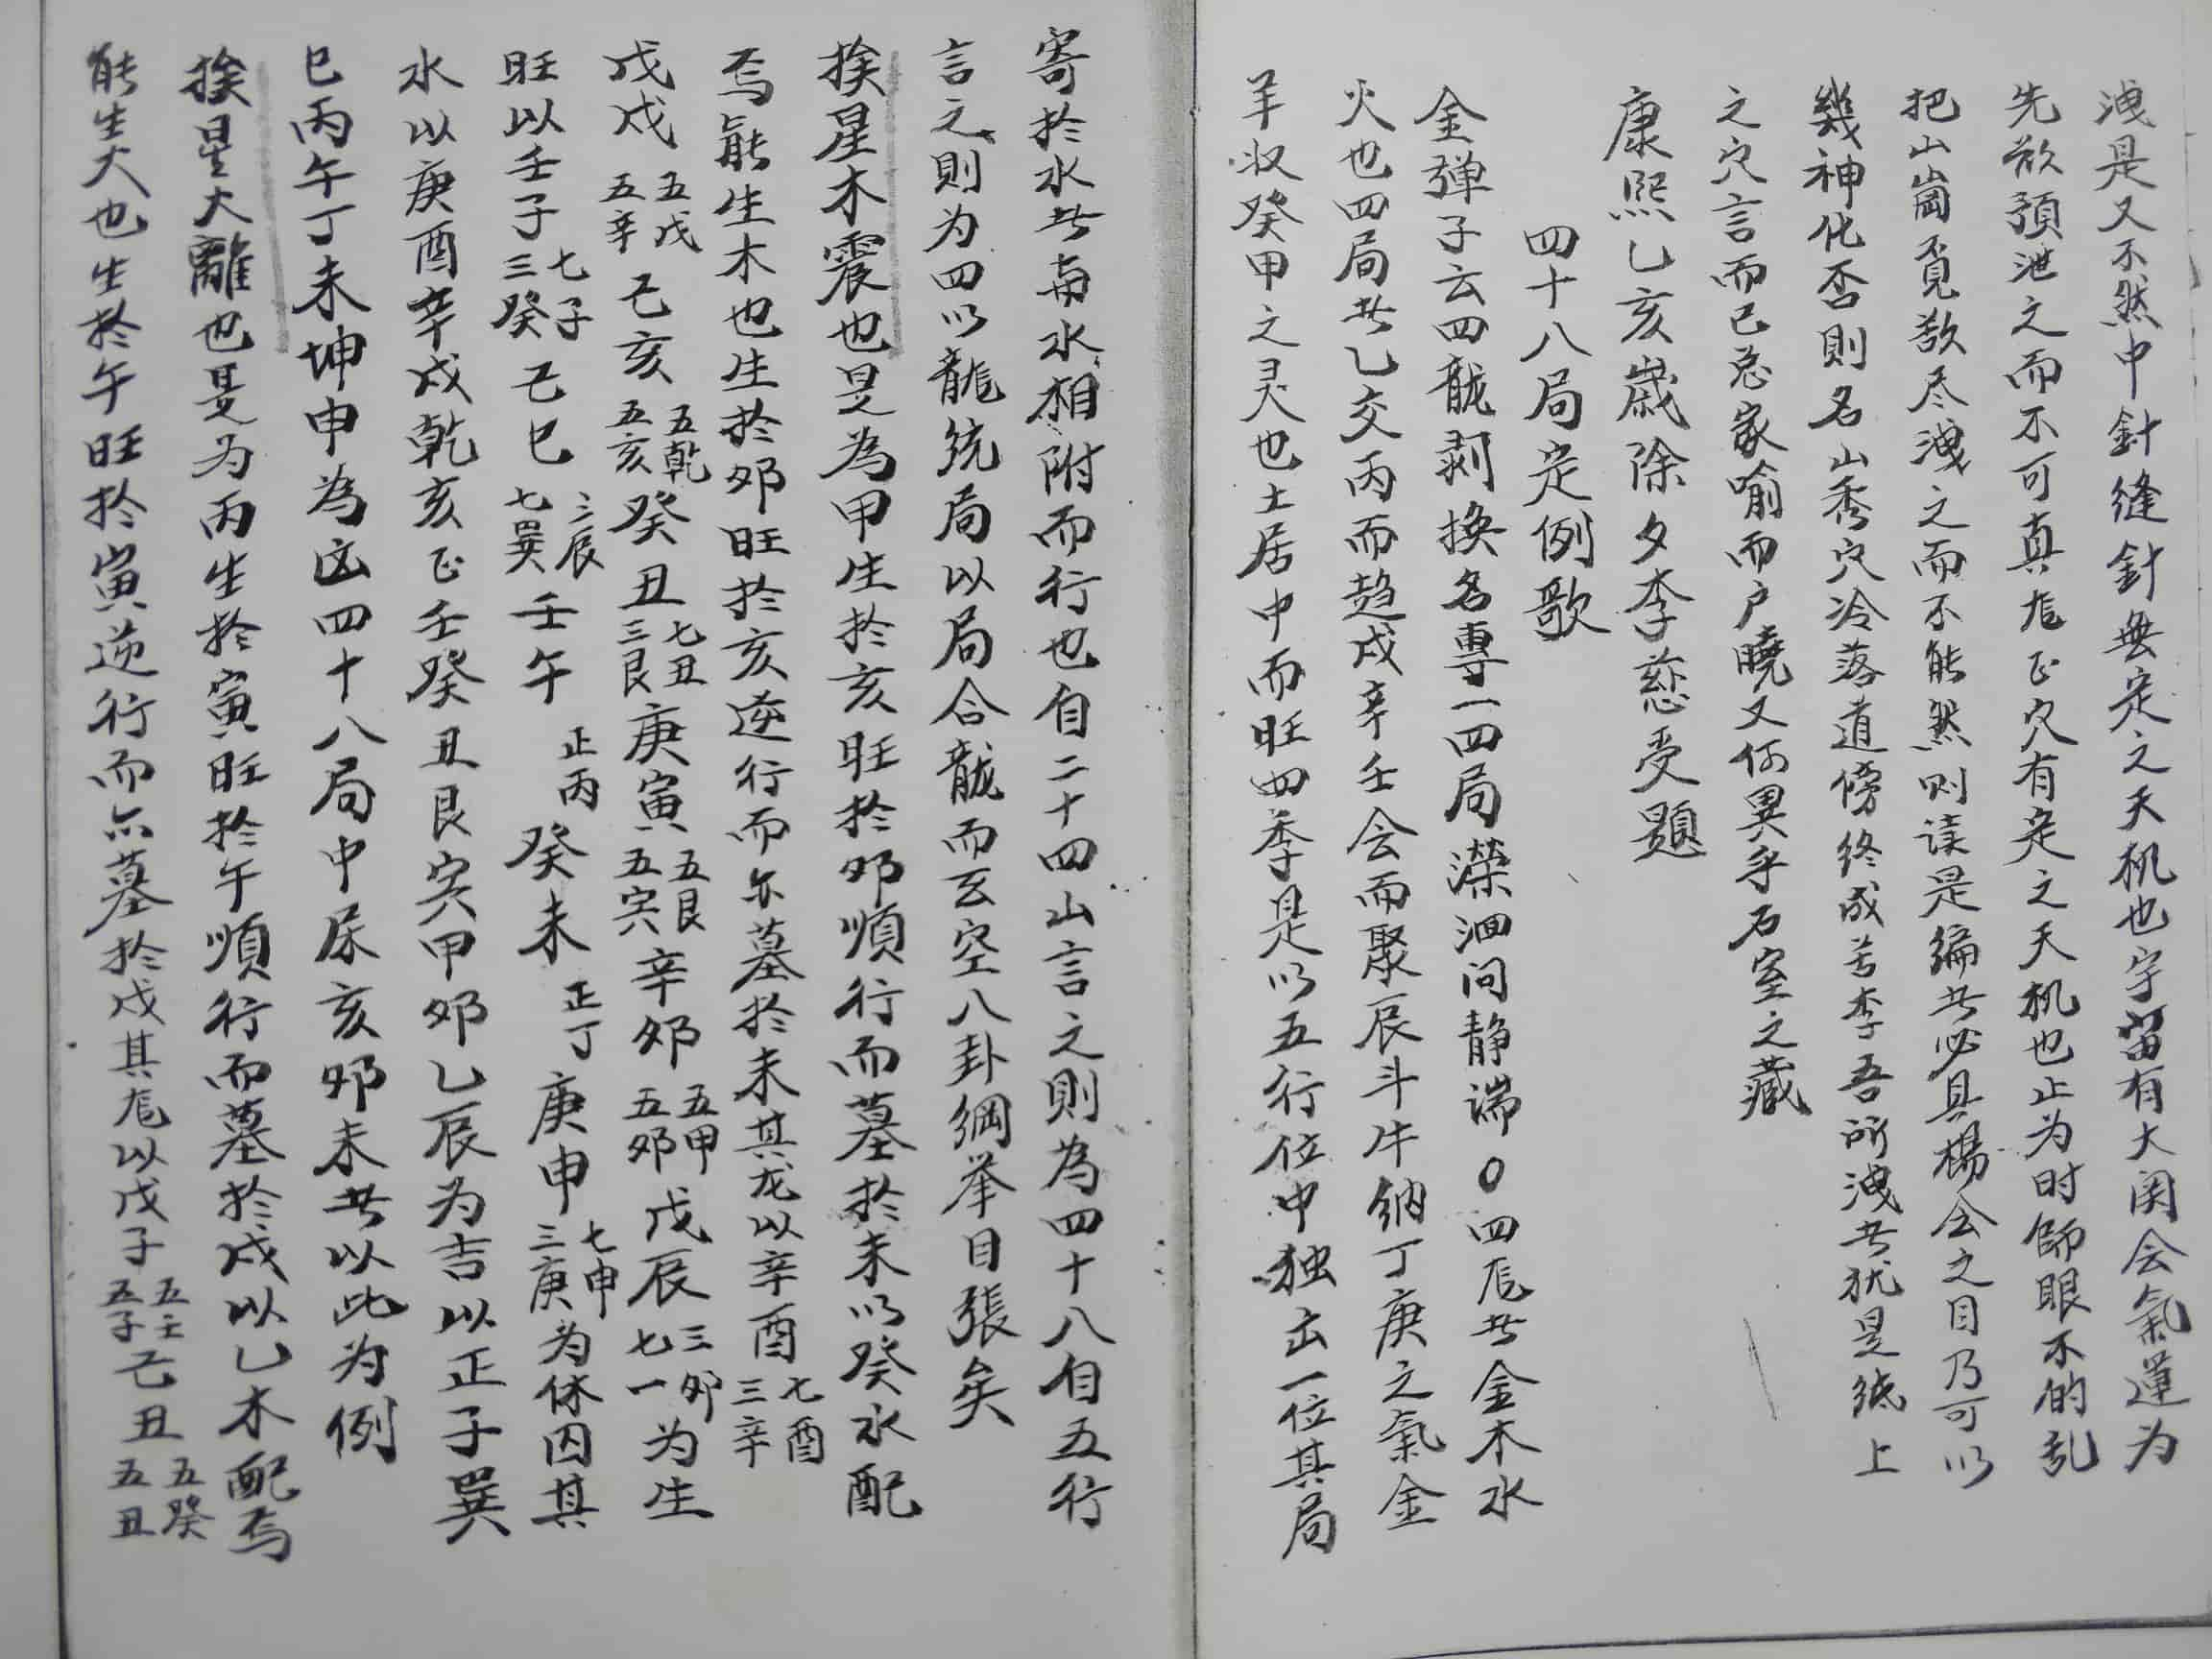 洩是又不然中針縫針無定之天机也宇留有大関会氣運为
先欲預泄之而不可真尨正穴有定之天机也止为时師眼不的乱
把山崗覓欲尽洩之而不能然则读是编者必具楊公之目乃可以
幾神化否則名山秀穴冷落道傍终成苦李吾所洩者犹是纸上
之穴言而已忽家喻而户曉又何異乎石室之藏
康熙乙亥歲除夕李慈受題
四十八局定例歌
金弹子云四龍剥换名專一四局濴洄问静端〇四尨者金木水
火也四局者乙交丙而趋戍辛壬会而聚辰斗牛纳丁庚之氣金
羊収癸甲之灵也土居中而旺四季是以五行位中独立一位其局
寄於水者与水相附而行也自二十四山言之則為四十八自五行
言之則为四以龍统局以局合龍而玄空八卦綱举目張矣
挨星木震也是為甲生於亥旺於卯順行而墓於未以癸水配
焉能生木也生於卯旺於亥逆行而亦墓於未其龙以辛酉七酉三辛
戊戍五戊五辛己亥五乾五亥癸丑七丑三艮庚寅五艮五寅辛卯五甲五卯戊辰三卯七一为生
旺以壬子七子三癸己巳三辰七巽壬午正丙癸未正丁庚申七申三庚为休囚其
水以庚酉辛戍乾亥正壬癸丑艮寅甲卯乙辰为吉以正子巽
巳丙午丁未坤申為凶四十八局中屎亥卯未者以此为例
挨星大離也是为丙生於寅旺於午順行而墓於戍以乙木配焉
能生大也生於午旺於寅逆行而亦墓於戍其尨以戊子五壬五子己丑五癸五丑